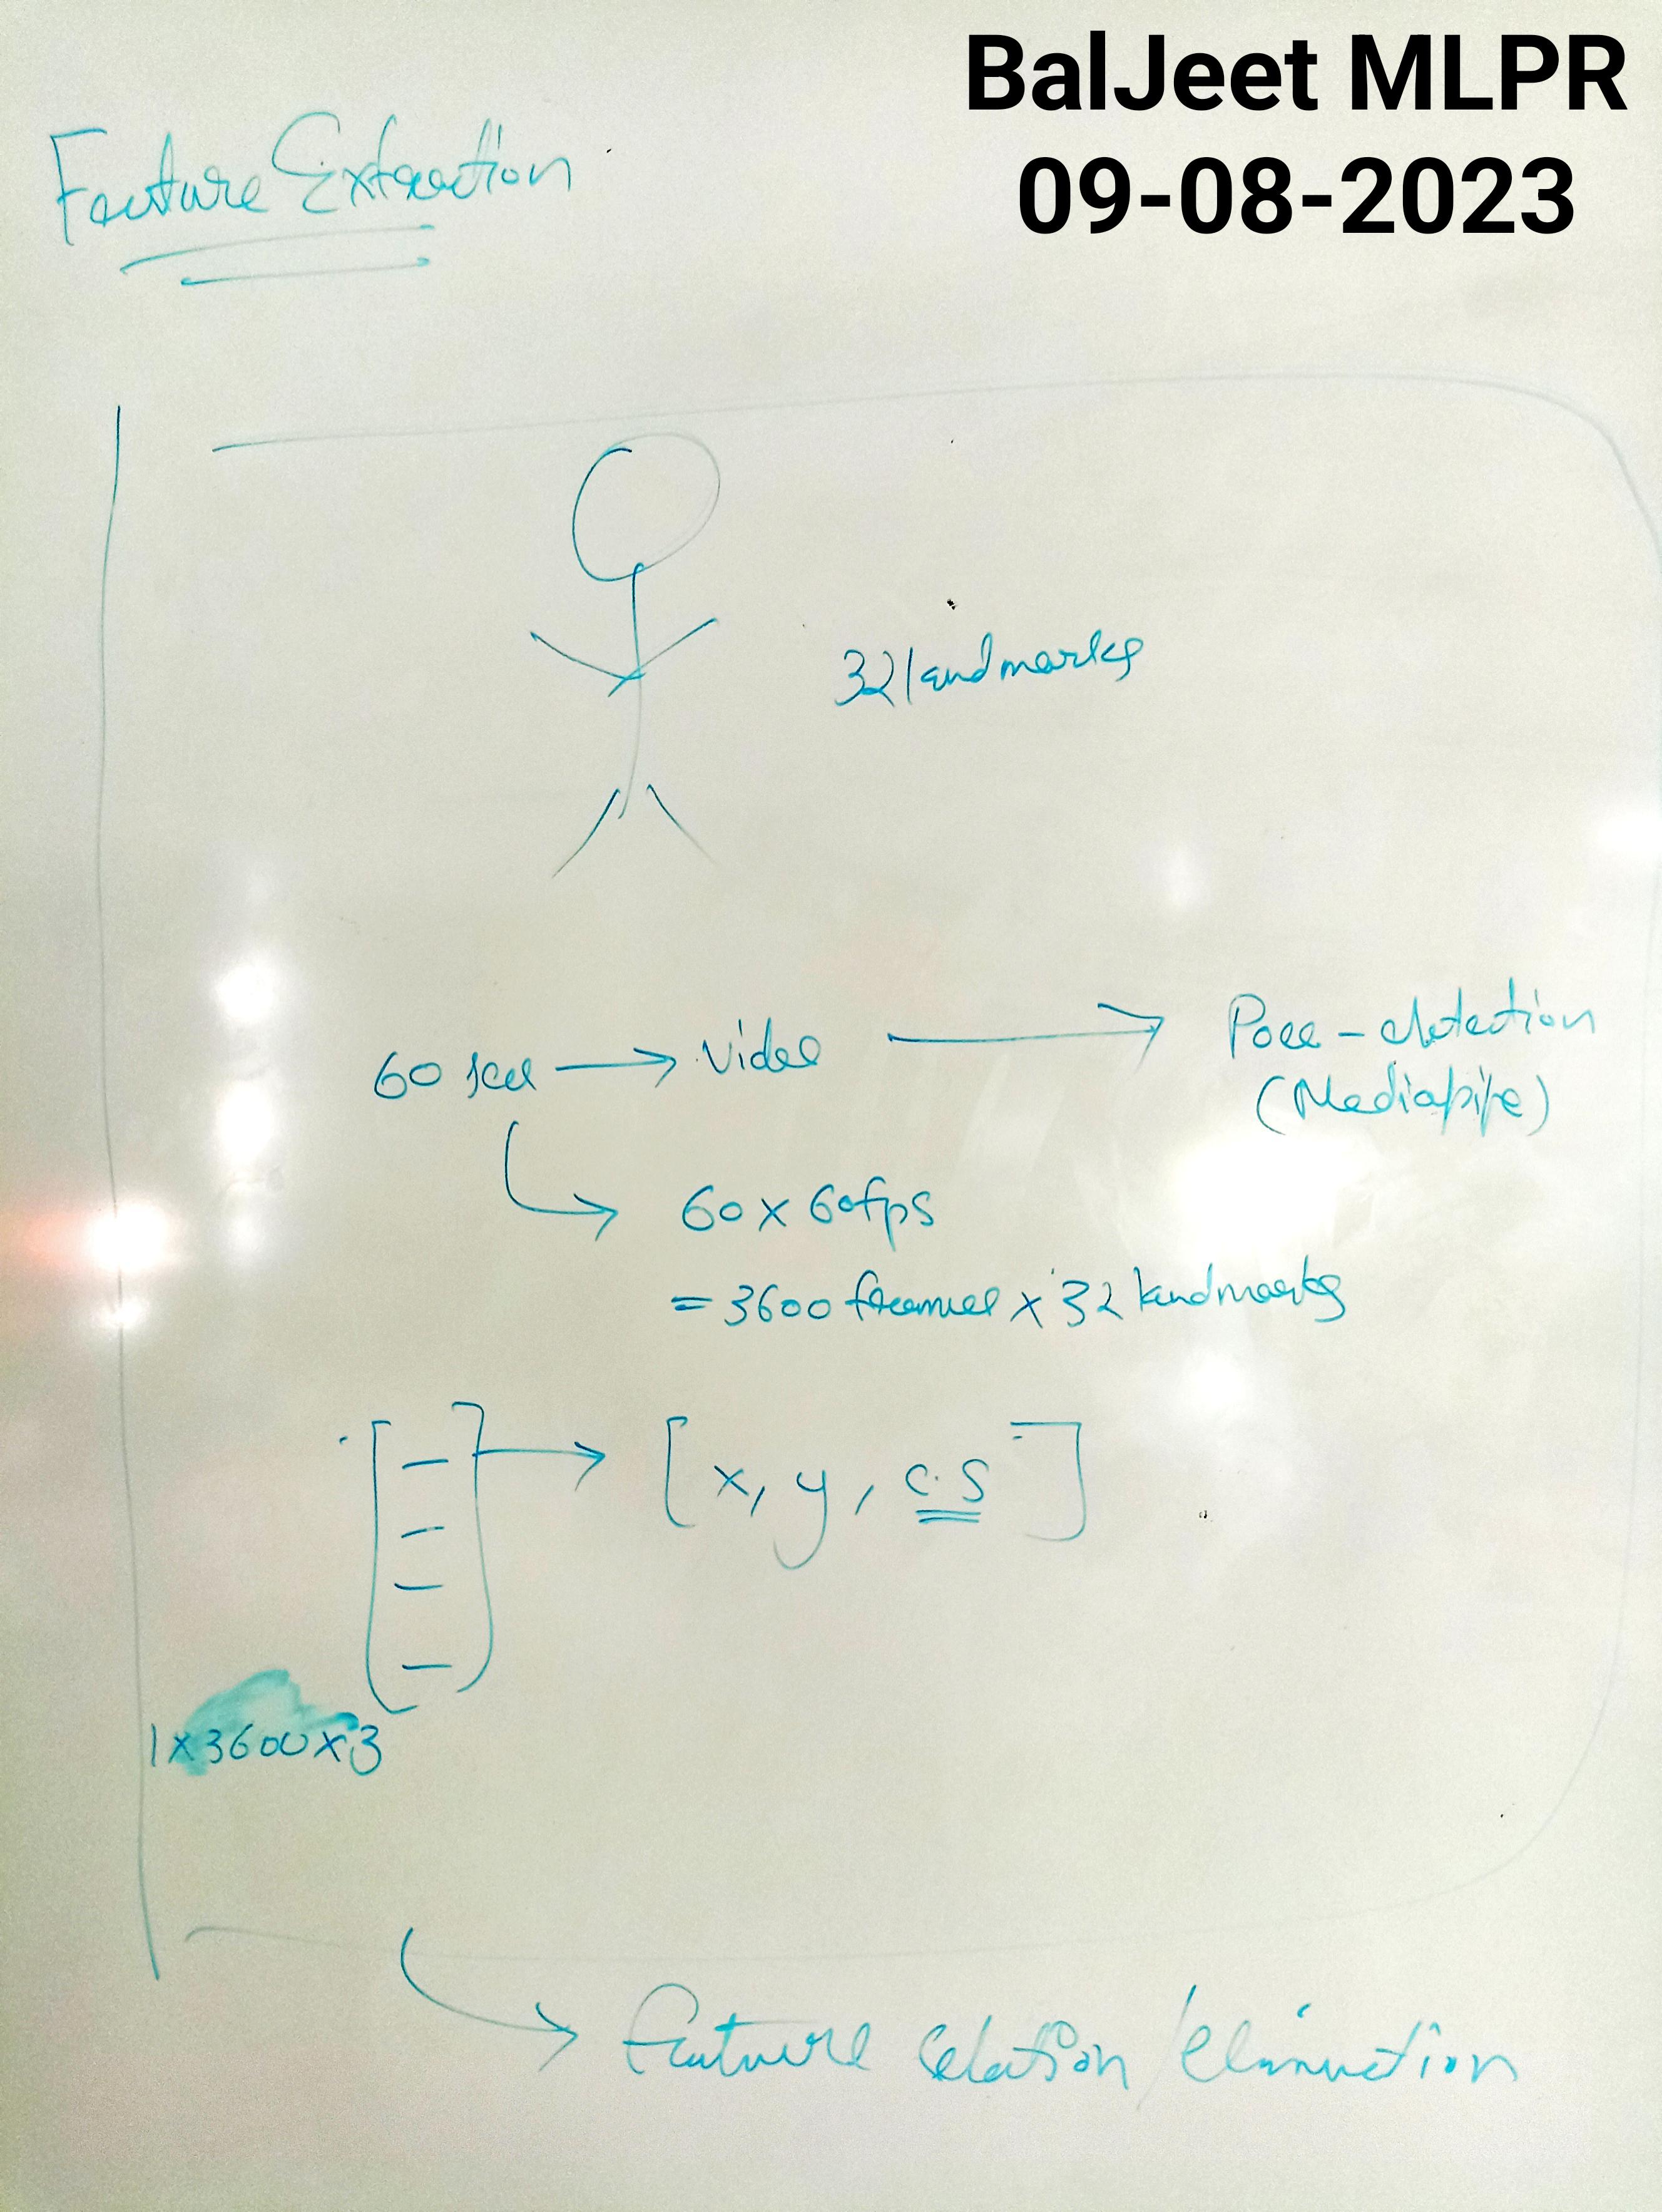 BalJeet MLPR
09-08-2023
Feature Extraction
32 landmarks
60 sec → Video → Pose-detection
(Mediapipe)
60 x 60fps
= 3600 frames x 32 landmarks
[x, y, c.s]
1x3600x3
Feature selation/elimination